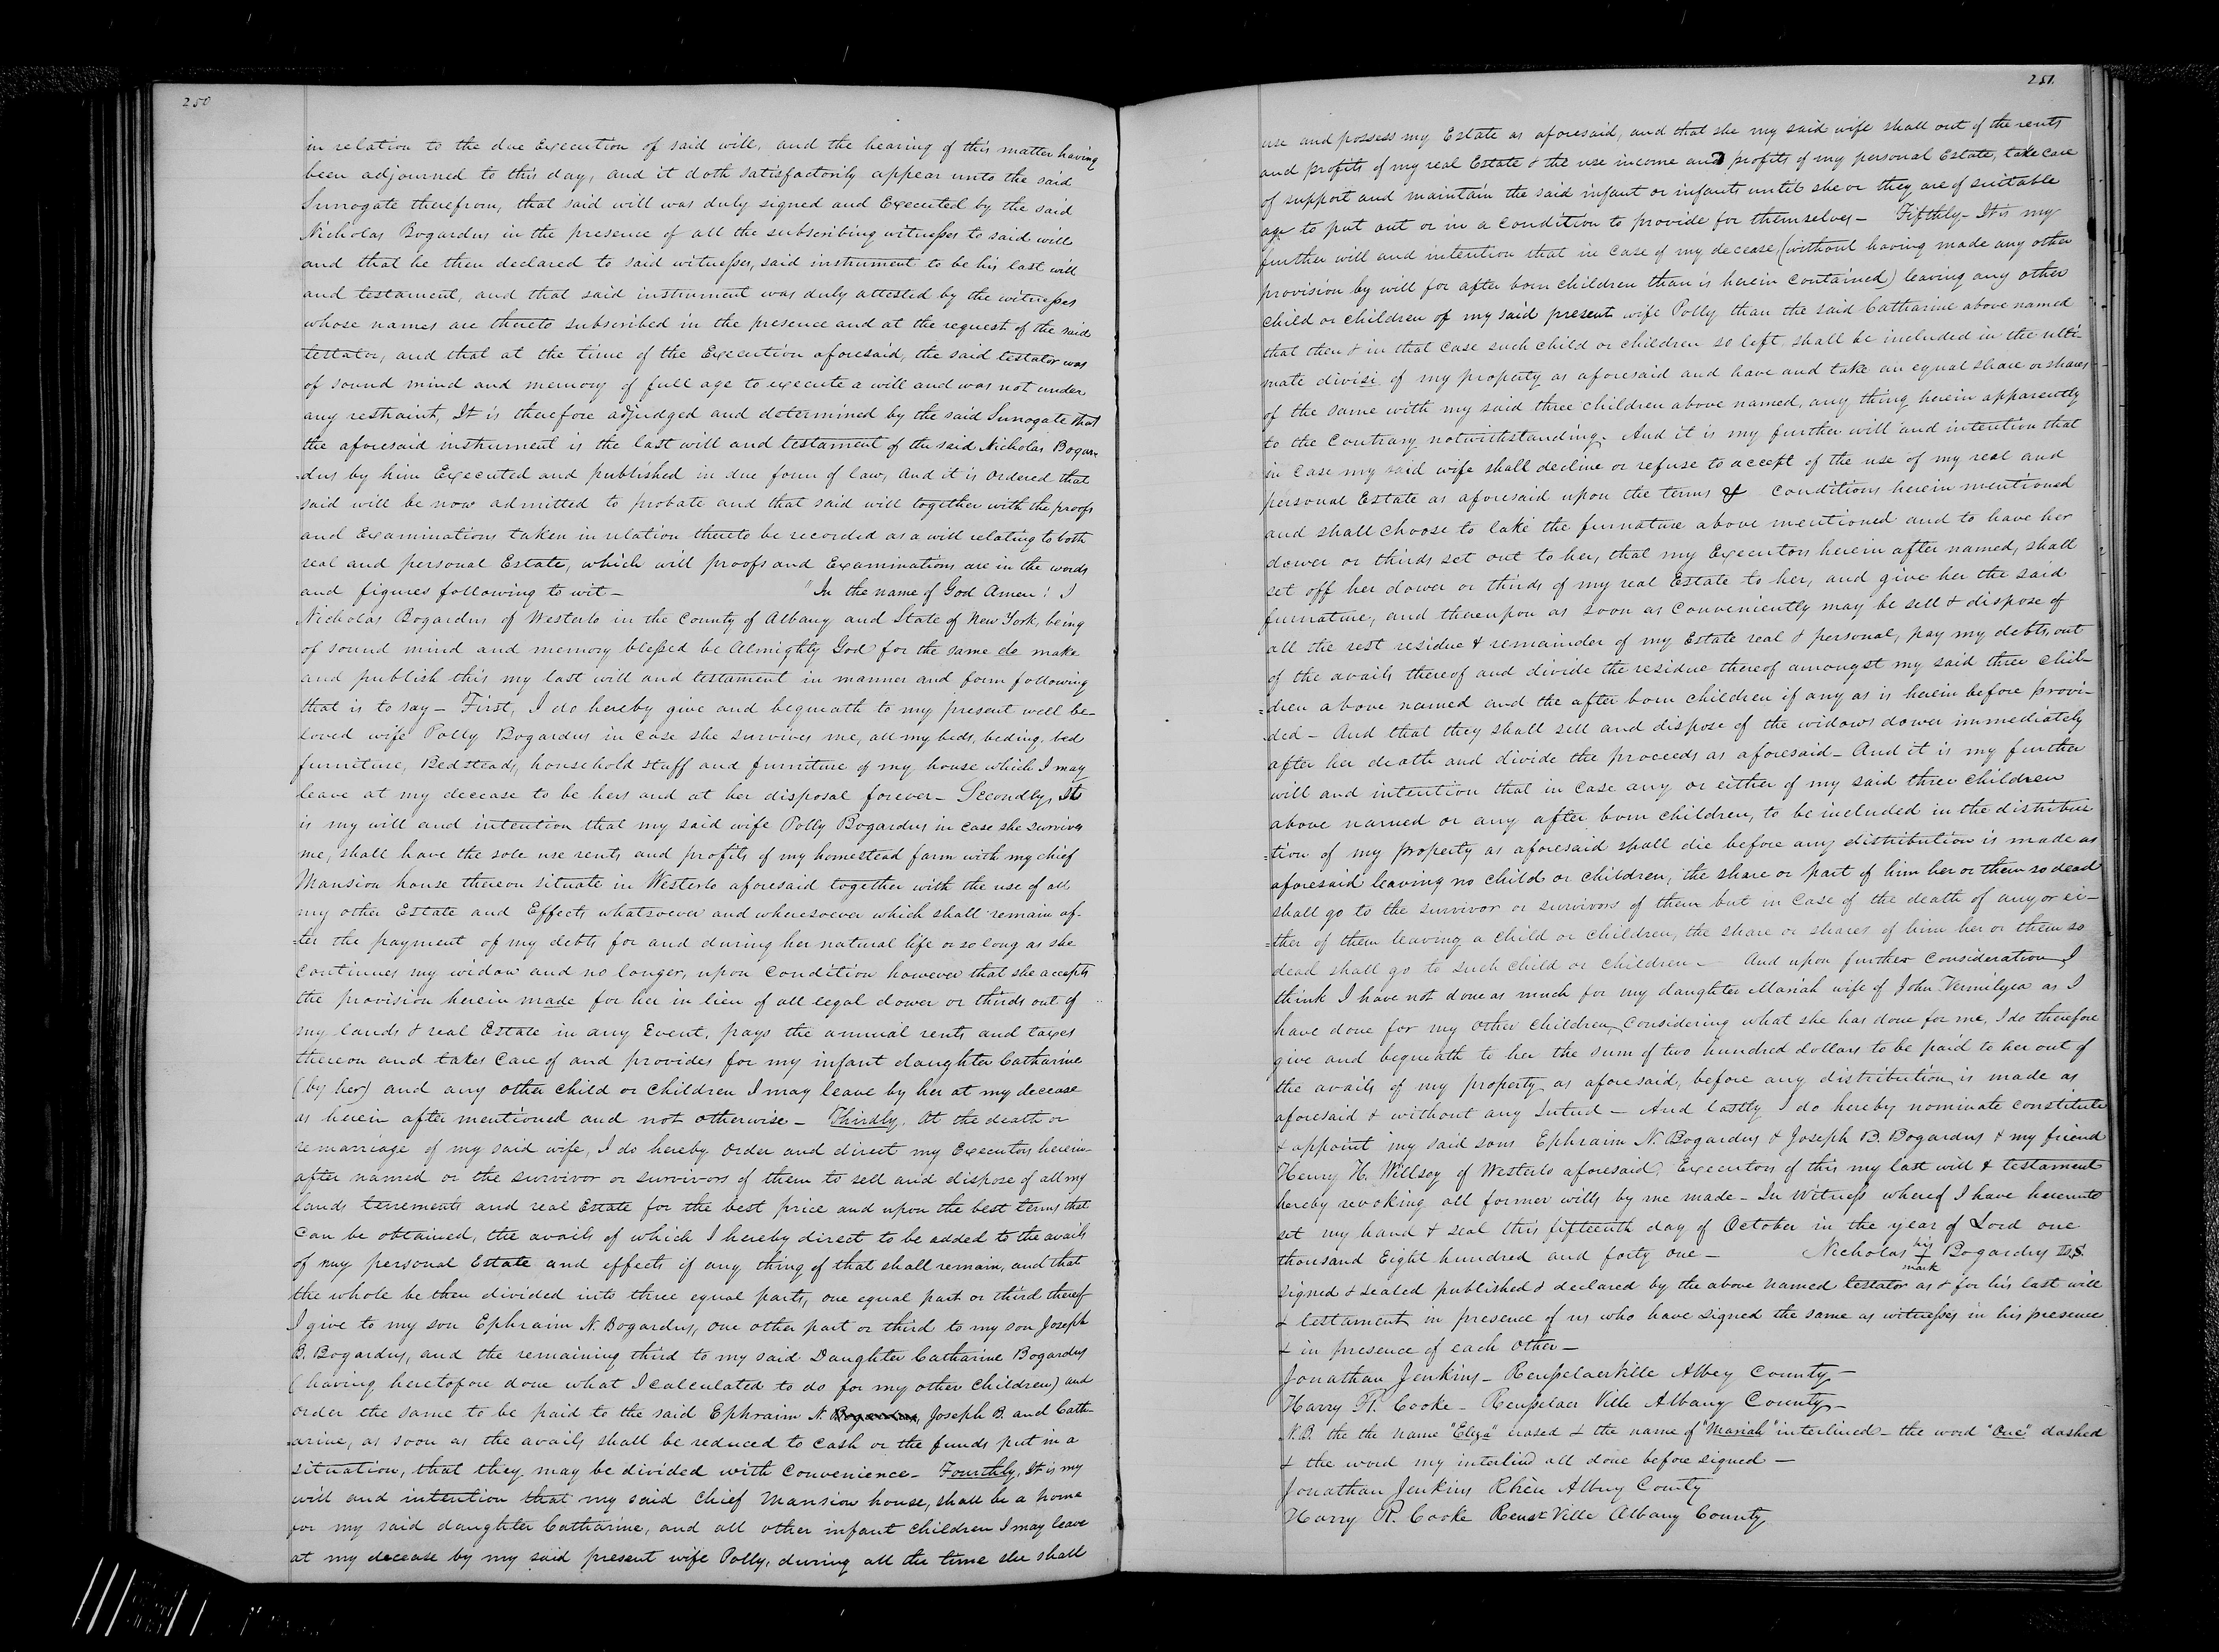 250
in relation to the due Execution of said will, and the hearing of this matter having
been adjourned to this day, and it doth satisfactorily appear unto the said
Surrogate therefrom, that said will was duly signed and Executed by the said
Nicholas Bogardus in the presence of all the subscribing witnesses to said will
and that he then declared to said witnesses, said instrument to be his last will
and testament, and that said instrument was duly attested by the witnesses
whose names are thereto subscribed in the presence and at the request of the said
testator, and that at the time of the Execution aforesaid, the said testator was
of sound mind and memory of full age to execute a will and was not under
any restraint, It is therefore adjudged and determined by the said Surrogate that
the aforesaid instrument is the last will and testament of the said Nicholas Bogar
-dus by him Executed and published in due form of law, and it is ordered that
said will be now admitted to probate and that said will together with the proofs
and Examinations taken in relation thereto be recorded as a will relating to both
real and personal Estate, which will proofs and Examinations are in the words
and figures following to wit - "In the name of God Amen: I
Nicholas Bogardus of Westerlo in the County of Albany and State of New York, being
of sound mind and memory blessed be Almighty God for the same do make
and publish this my last will and testament in manner and form following
that is to say - First, I do hereby give and bequeath to my present well be-
loved wife Polly Bogardus in case she survives me, all my beds, beding, bed
furniture, Bedsteads, household stuff and furniture of my house which I may
leave at my decease to be hers and at her disposal forever - Secondly, It
is my will and intention that my said wife Polly Bogardus in case she survives
me, shall have the sole use rents and profits of my homestead farm with my chief
Mansion house thereon situate in Westerlo aforesaid together with the use of all
my other Estate and Effects whatsoever and wheresoever which shall remain af-
-ter the payment of my debts for and during her natural life or so long as she
continues my widow and no longer, upon condition however that she accepts
the provision herein made for her in lieu of all legal dower or thirds out of
my lands & real Estate in any Event, pays the annual rents and taxes
thereon and takes care of and provides for my infant daughter Catharine
(by her) and any other child or children I may leave by her at my decease
as herein after mentioned and not otherwise - Thirdly. At the death or
re marriage of my said wife, I do hereby order and direct my Executors herein-
after named or the survivor or survivors of them to sell and dispose of all my
lands tenements and real Estate for the best price and upon the best terms that
can be obtained, the avails of which I hereby direct to be added to the avails
of my personal Estate and effects if any thing of that shall remain, and that
the whole be then divided into three equal parts, one equal part or third thereof
I give to my son Ephraim N. Bogardus, one other part or third to my son Joseph
B. Bogardus, and the remaining third to my said Daughter Catharine Bogardus
(having heretofore done what I calculated to do for my other children) and
order the same to be paid to the said Ephraim N. Bogardus, Joseph B. and Cath-
-arine, as soon as the avails shall be reduced to cash or the funds put in a
situation, that they may be divided with convenience - Fourthly, It is my
will and intention that my said Chief Mansion house, shall be a home
for my said daughter Catharine, and all other infant children I may leave
at my decease by my said present wife Polly, during all the time she shall
251
use and possess my Estate as aforesaid, and that she my said wife shall out of the rents
and profits of my real Estate & the use income and profits of my personal Estate, take care
of support and maintain the said infant or infants until she or they are of suitable
age to put out or in a condition to provide for themselves - Fifthly - It is my
further will and intention that in case of my decease, (without having made any other
provision by will for after born children than is herein contained) leaving any other
child or children of my said present wife Polly than the said Catharine above named
that then & in that case such child or children so left, shall be included in the ulti-
mate divisi of my property as aforesaid and have and take an equal share or shares
of the same with my said three children above named, any thing herein apparently
to the Contrary notwithstanding. And it is my further will and intention that
in case my said wife shall decline or refuse to accept of the use of my real and
personal Estate as aforesaid upon the terms & conditions herein mentioned
and shall choose to take the furnature above mentioned and to have her
dower or thirds set out to her, that my Executors herein after named, shall
set off her dower or thirds of my real Estate to her, and give her the said
furnature, and thereupon as soon as conveniently may be sell & dispose of
all the rest residue & remainder of my Estate real & personal, pay my debts, out
of the avails thereof and divide the residue thereof amongst my said three chil-
-dren above named and the after born children if any as is herein before provi-
-ded - And that they shall sell and dispose of the widows dower immediately
after her death and divide the proceeds as aforesaid - And it is my further
will and intention that in case any or either of my said three children
above named or any after born children, to be included in the distribu
-tion of my property as aforesaid shall die before any distribution is made as
aforesaid leaving no child or children, the share or part of him her or them so dead
shall go to the survivor or survivors of them but in case of the death of any or ei-
-ther of them leaving a child or children, the share or shares of him her or them so
dead shall go to such child or children - And upon further consideration I
think I have not done as much for my daughter Mariah wife of John Vermilyea as I
have done for my other children, considering what she has done for me, I do therefore
give and bequeath to her the sum of two hundred dollars to be paid to her out of
the avails of my property as aforesaid, before any distribution is made as
aforesaid & without any Intrust - And lastly I do hereby nominate constitute
& appoint my said sons Ephraim N. Bogardus & Joseph B. Bogardus & my friend
Henry H. Willsey of Westerlo aforesaid, Executors of this my last will & testament
hereby revoking all former wills by me made - In Witness whereof I have hereunto
set my hand & seal this fifteenth day of October in the year of Lord one
thousand Eight hundred and forty one - Nicholas his + mark Bogardus L.S.
signed & sealed published & declared by the above named testator as & for his last will
& testament in presence of us who have signed the same as witnesses in his presence
& in presence of each other -
Jonathan Jenkins - Rensselaerville Albey County -
Harry R. Cooke - Rensselaer Ville Albany County -
N.B. the the name "Eliza" erased & the name of "Mariah" interlined - the word "One" dashed
& the word my interlind all done before signed -
Jonathan Jenkins Albny County
Harry R. Cooke Rensr Ville Albany County